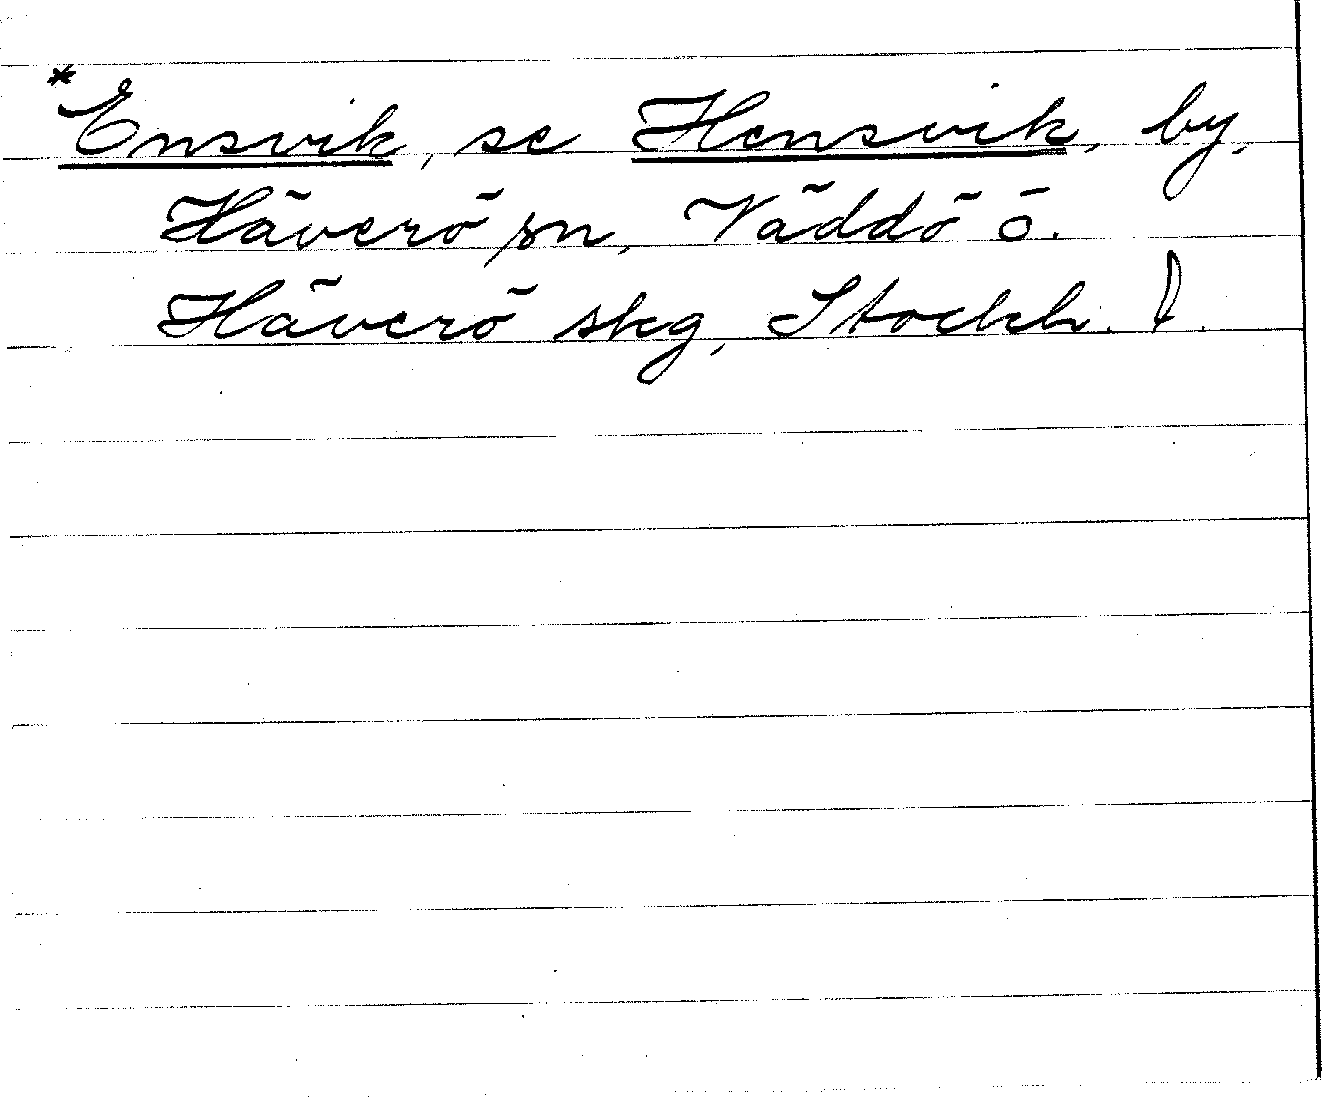 *Ensvik, se Hensvik, by,
Häverö sn, Väddö ö.
Häverö skg, Stockh. l.